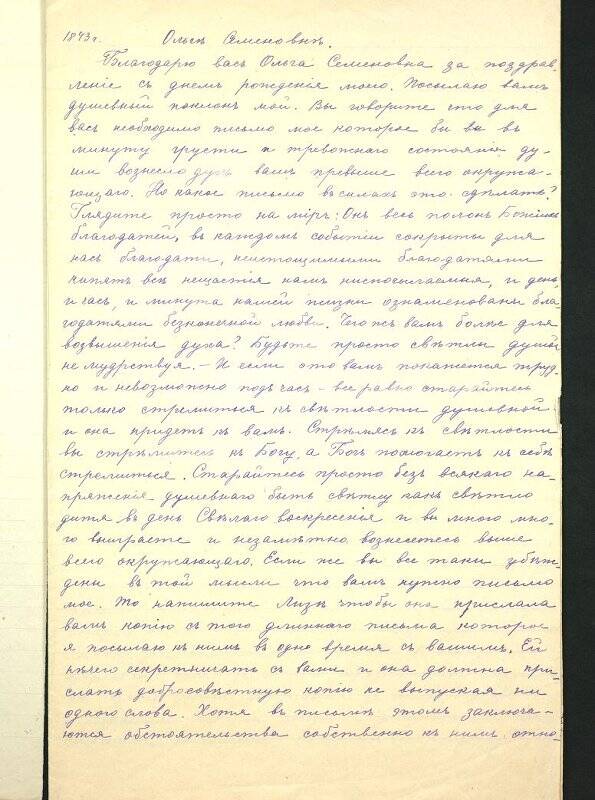 1843 г. Ольгѣ Семеновнѣ.
Благодарю васъ Ольга Семеновна за поздрав-
леніе съ днемъ рожденія моего. Посылаю вамъ
душевный поклонъ мой. Вы говорите что для
васъ необходимо письмо мое которое бы вы въ
минуту грусти и тревожнаго состоянія ду-
ши вознесло духъ вашъ превыше всего окружа-
ющаго. Но какое письмо въ силахъ это сдѣлать?
Глядите просто на міръ: Онъ весь полонъ Божіихъ
благодатей, въ каждомъ событіи сокрыты для
насъ благодати, неистощимыми благодатями
кипятъ всѣ нещастія намъ ниспосылаемыя, и день,
и часъ, и минута нашей жизни ознаменованы бла-
годатями безконечной любви. Чего жъ вамъ болѣе для
возвышенія духа? Будьте просто свѣтлы душой
не мудрствуя. – И если это вамъ покажется труд-
но и невозможно подъ часъ – все равно старайтесь
только стремиться къ свѣтлости душевной
и она придетъ къ вамъ. Стремясь къ свѣтлости
вы стремитесь къ Богу, а Богъ помогаетъ къ себѣ
стремиться. Старайтесь просто безъ всякаго на-
пряженія душевнаго быть свѣтлу какъ свѣтло
дитя въ день Свѣтлаго воскресенія и вы много мно-
го выиграете и незамѣтно вознесетесь выше
всего окружающаго. Если же вы все таки убѣж-
дены въ той мысли что вамъ нужно письмо
мое. То напишите Лизѣ чтобы она прислала
вамъ копію съ того длиннаго письма которое
я посылаю къ нимъ въ одно время съ вашимъ. Ей
нѣчего секретничать съ вами и она должна при-
слать добросовѣстную копію не выпуская ни
одного слова. Хотя въ письмѣ этомъ заключа-
ются обстоятельства собственно къ нимъ отно-